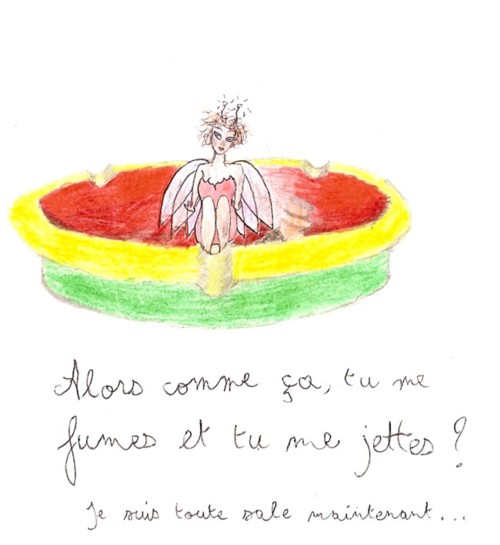 Alors comme ça, tu me
fumes et tu me jettes ?
Je suis toute sale maintenant...